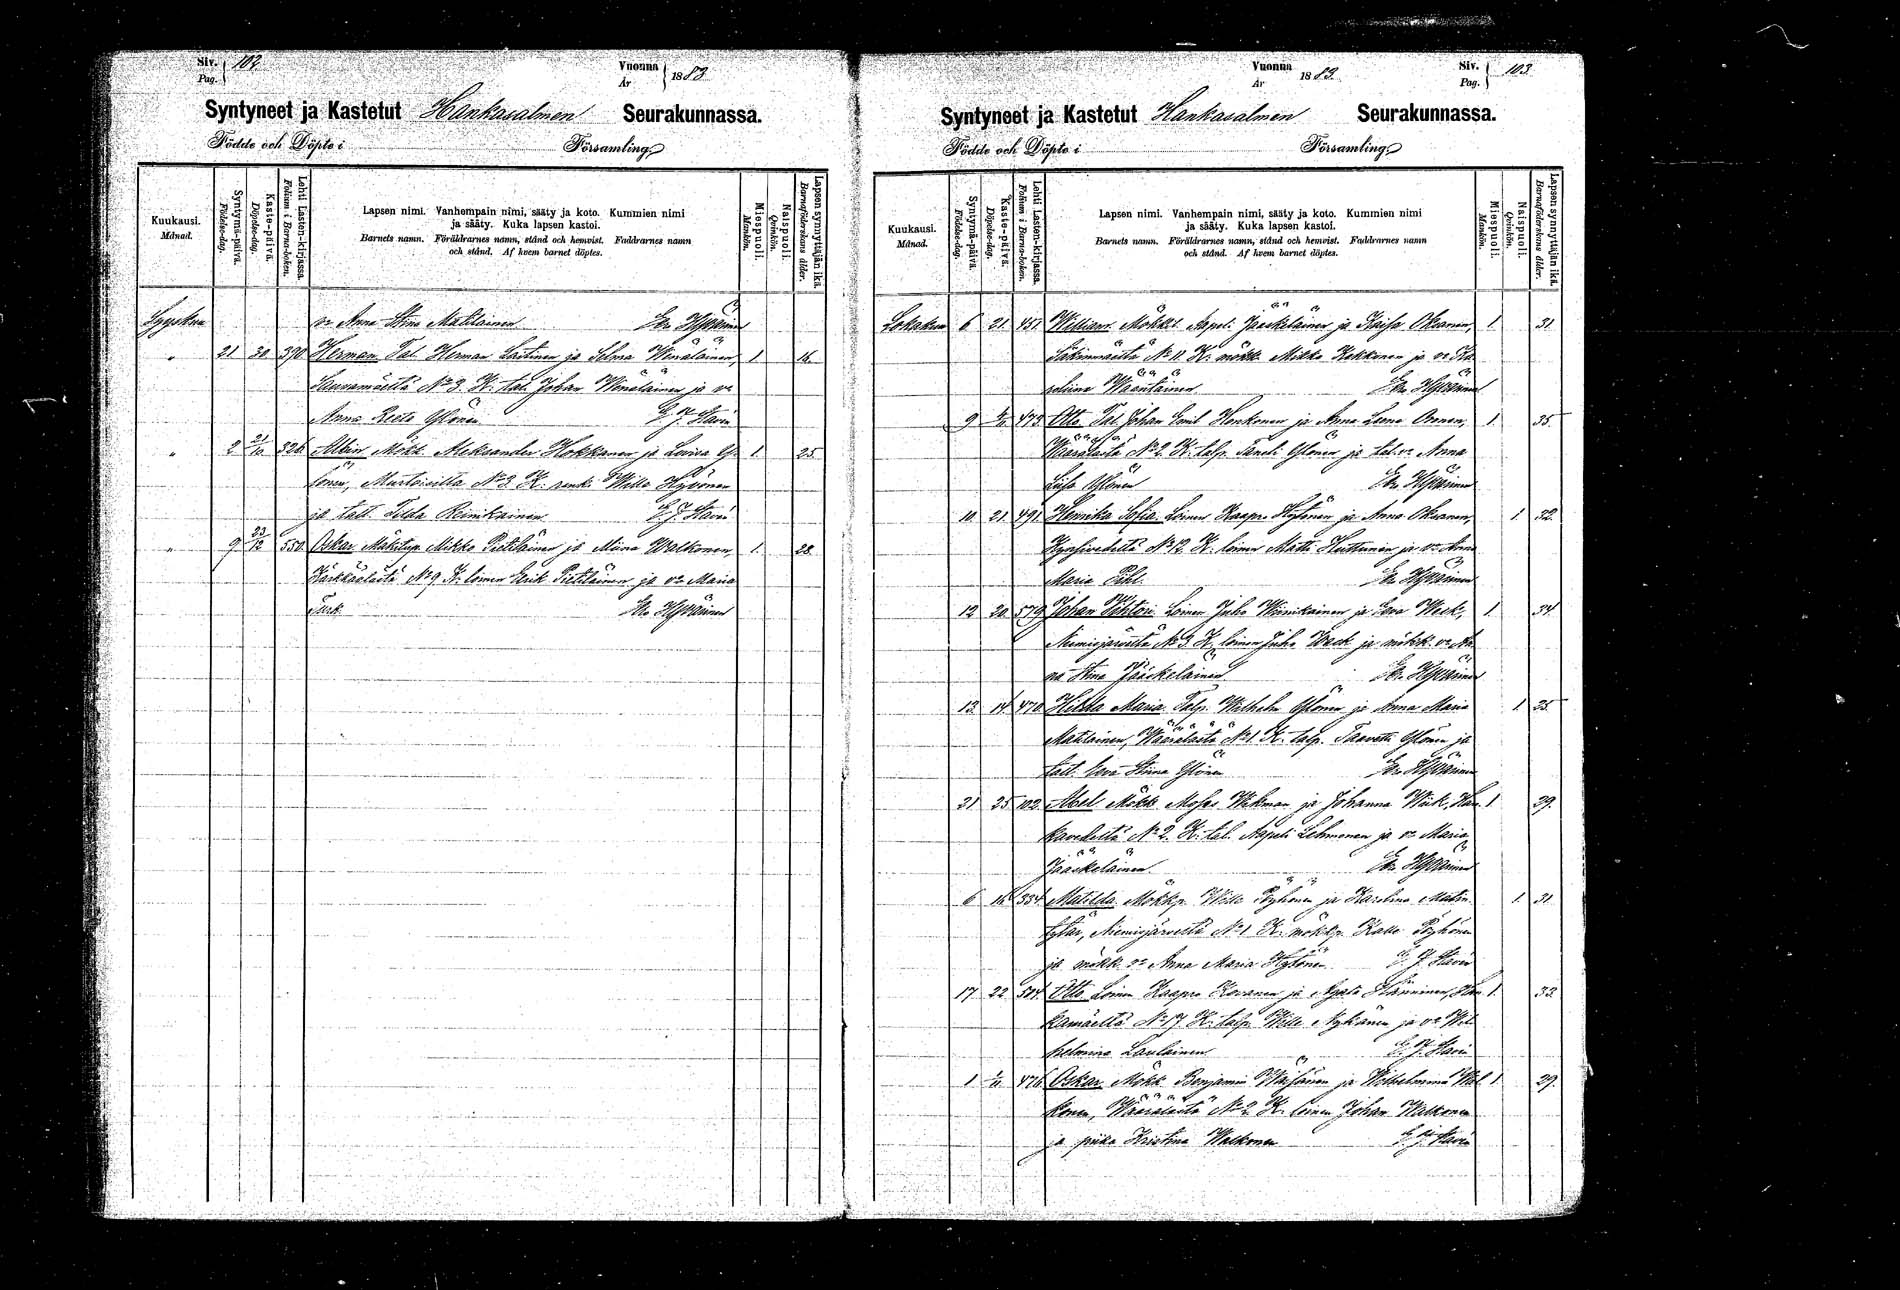 Siv. Pag. 102.
Vuonna År 1883
Syntyneet ja Kastetut Hankasalmen Seurakunnassa.
Födde och Döpte i Församling
Kuukausi. Månad.
Syntymä-päivä. Födelse-dag.
Kaste-päivä. Döpelse-dag.
Lehti Lasten-kirjassa. Folium i Barna-boken.
Lapsen nimi. Vanhempain nimi, sääty ja koto. Kummien nimi
ja sääty. Kuka lapsen kastoi.
Barnets namn. Föräldrarnes namn, stånd och hemvist. Faddrarnes namn
och stånd. Af hvem barnet döptes.
Miespuoli. Mankön.
Naispuoli. Qvinkön.
Lapsen synnyttäjän ikä. Barnaföderskans ålder.
Syyskuu v:o Anna Stina Matilainen Hyvärinen
" 21 30 390 Herman Tal. Herman Laitinen ja Selma Wenäläinen, 1. 16.
Saunamäeltä No 3. K: tal. Johan Wenäläinen ja v:o
Anna Reeta Ylönen
" 2 21/10 326. Albin Mökk. Aleksander Hokkanen ja Lovisa Y- 1. 25.
lönen, No 3 K: renki Wille Hyvönen
ja tal. Tilda Reinikainen
" 9 23/12 550. Oskar Mäkitup. Mikko Pietiläinen ja Miina Walkonen, 1. 28.
Kärkkäälästä No 9 K: loinen Erik Pietiläinen ja v:o Maria
Turk. Hyvärinen
Siv. Pag. 103.
Vuonna År 1883.
Syntyneet ja Kastetut Hankasalmen Seurakunnassa.
Födde och Döpte i Församling
Kuukausi. Månad.
Syntymä-päivä. Födelse-dag.
Kaste-päivä. Döpelse-dag.
Lehti Lasten-kirjassa. Folium i Barna-boken.
Lapsen nimi. Vanhempain nimi, sääty ja koto. Kummien nimi
ja sääty. Kuka lapsen kastoi.
Barnets namn. Föräldrarnes namn, stånd och hemvist. Faddrarnes namn
och stånd. Af hvem barnet döptes.
Miespuoli. Mankön.
Naispuoli. Qvinkön.
Lapsen synnyttäjän ikä. Barnaföderskans ålder.
Lokakuu 6 21. 451. William. Mökkl. Aapeli Jääskeläinen ja Kaisa Oksanen, 1. 31
No 11. K: mökk. Mikko Kekkonen ja v:o Ka-
roliina Wäänäinen Hyvärinen
9 473. Otto. Tal. Johan Emil Honkonen ja Anna Leena Oinonen, 1. 35.
Wäärälästä No 2 K: talp. Taneli Ylönen ja tal. v:o Anna
Liisa Ylönen Hyvärinen
10. 21. 491. Henrika Sofia. Loinen Kaapro Hytönen ja Anna Oksanen, 1. 32.
Kynsivedeltä No 12. K: loinen Matti Huttunen ja v:o Anna
Maria Pihl. Hyvärinen
12 20. 579. Johan Loinen Juho Wiinikainen ja Eeva Weck, 1. 34
Niemisjärveltä No 3. K: loinen Juho Weck ja mökk. v:o An-
na Stina Jääskeläinen Hyvärinen
13. 14. 470. Hilda Maria. Talp. Wilhelm Ylönen ja Anna Maria 1. 35.
Matilainen, Wäärälästä No 1. K: talp. Taavetti Ylönen ja
tal. Eeva Stiina Ylönen Hyvärinen
21 25 102. Abel. Mökk. Moses Wekman ja Johanna Wiik, Han- 1 39.
kavedeltä No 2. K: tal. Aapeli Lehmonen ja v:o Maria
Jääskeläinen Hyvärinen
6 16 534. Matilda. Mökkp. Wille Pöyhönen ja Karolina Matin- 1. 31
tytär, Niemisjärveltä No 1 K: mökkp. Kalle Pöyhönen
ja mökk. v:o Anna Maria Hytönen
17 22. 504. Otto. Loinen Kaapro Kovanen ja Agata Hänninen, Han- 1. 33.
kamäeltä No 17. K: talp. Wille Nykänen ja v:o Wil-
helmina Laulainen
1 1/11 476. Oskar. Mökk. Benjamin Wäisänen ja Wilhelmina Wal- 1. 29.
konen, Wäärälästä No 2 K: loinen Johan Walkonen
ja piika Kristina Walkonen